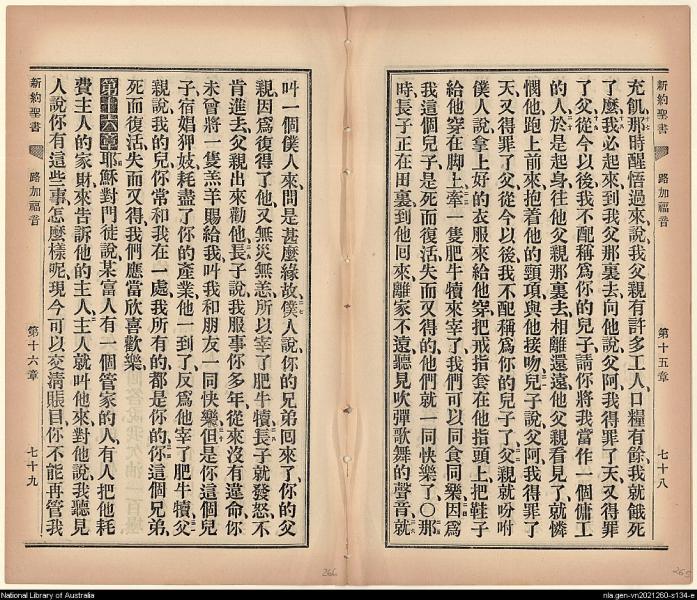 新約聖書 路加福音 第十五章 七十八
充飢、那時醒悟過來說、我父親有許多工人、口糧有餘、我就餓死
了麼、我必起來、到我父那裏去、向他說、父阿、我得罪了天、又得罪
了父、從今以後、我不配稱爲你的兒子、請你將我當作一個傭工
的人、於是起身往他父親那裏去、相離還遠、他父親看見了、就憐
憫他、跑上前來、抱着他的頸項、與他接吻、兒子說、父阿、我得罪了
天、又得罪了父、從今以後、我不配稱爲你的兒子了、父親就吩咐
僕人說、拿上好的衣服來給他穿、把戒指套在他指頭上、把鞋子
給他穿在脚上、牽一隻肥牛犢來宰了、我們可以同食同樂、因爲
我這個兒子、是死而復活、失而又得的、他們就一同快樂了〇那
時長子正在田裏、到他回來、離家不遠、聽見吹彈歌舞的聲音、就
叫一個僕人來、問是甚麼緣故、僕人說、你的兄弟回來了、你的父
親、因爲復得了他、又無災無恙、所以宰了肥牛犢、長子就發怒、不
肯進去、父親出來勸他、長子說、我服事你多年、從來沒有違命、你
未曾將一隻羔羊賜給我、叫我和朋友一同快樂、但是你這個兒
子、宿娼狎妓、耗盡了你的產業、他一到了、反爲他宰了肥牛犢、父
親說、我的兒、你常和我在一處、我所有的都是你的、你這個兄弟、
死而復活、失而又得、我們應當欣喜歡樂
第十六章耶穌對門徒說、某富人有一個管家的人、有人把他耗
費主人的家財、來告訴他的主人、主人就叫他來、對他說、我聽見
人說你有這些事、怎麼樣呢、現今可以交清賬目、你不能再管我
新約聖書 路加福音 第十六章 七十九
266
265
National Library of Australia
nla.gen-vn2021260-s134-e